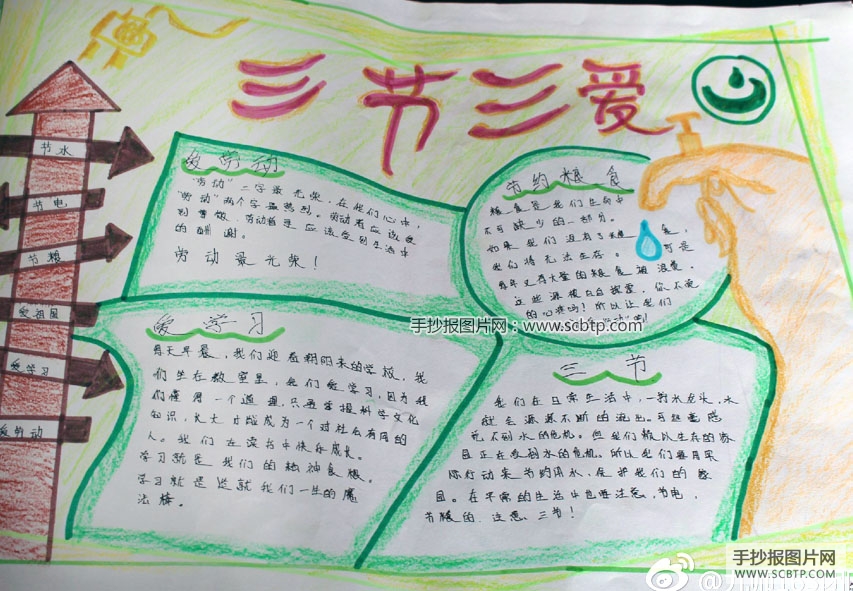 三节三爱
节水
节电
节粮
爱祖国
爱学习
爱劳动
爱劳动
"劳动"二字最光荣，在我们心中，
"劳动"两个字最熟悉。劳动者应该受
到尊敬，劳动者是应该受到生活中
的酬谢。
劳动最光荣！
节约粮食
粮食是我们生命中
不可缺少的一部分。
如果我们没有了
我们将无法生存。可是
每年又有大量的粮食被浪费，
的心疼吗？所以让我们
爱学习
每天早晨，我们迎着朝阳来的学校，我
们坐在教室里，我们爱学习，因为我
们懂得一个道理，只要掌握科学文化
知识，长大才能成为一个对社会有用的
人。我们在读书中快乐成长。
学习就是我们的精神食粮。
学习就是造就我们一生的魔
法棒。
三节
我们在日常生活中，一到水龙头，水
就会源源不断的流出。可能感
觉不到水的危机。但我们赖以生存的家
园正在受到水的危机。所以我们要用实
际行动来节约用水，保护我们的家
园。在平常的生活中也要注意，节电，
节粮的。注意。三节！
手抄报图片网：www.scbtp.com
手抄报图片网
WWW.SCBTP.COM